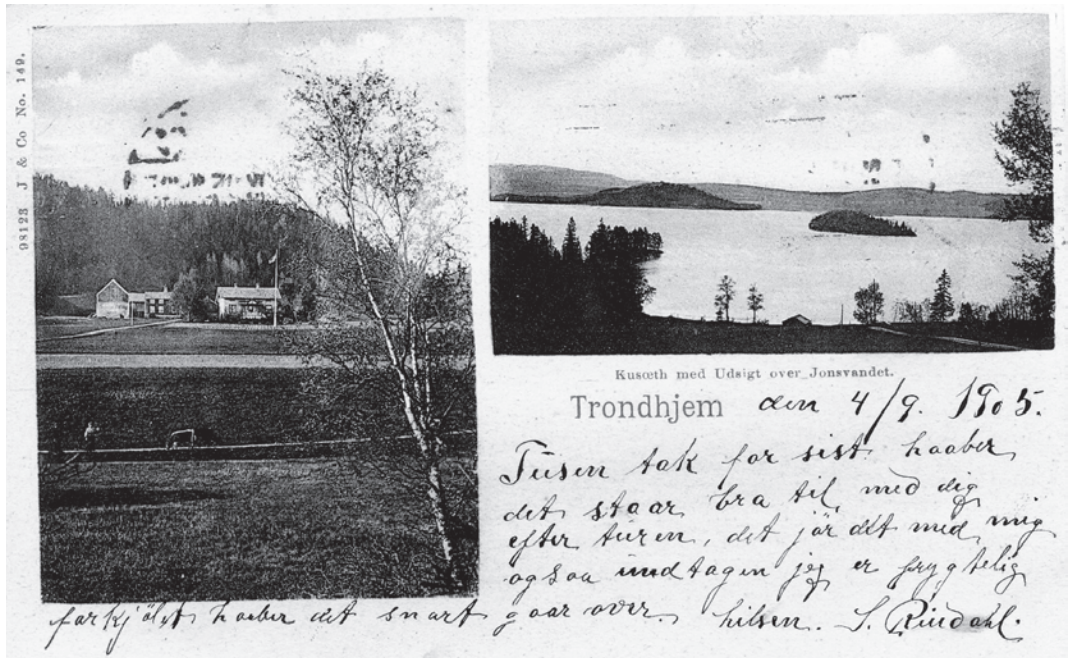 98123 J & Co No. 149.
Kusœth med Udsigt over Jonsvandet.
Trondhjem den 4/9. 1905.
Tusen tak for sist haaber
det staar bra til med dig
efter turen, det jör det med mig
ogsaa undtagen jeg er frygtelig
forkjölet haaber det snart gaar over. hilsen. S. Rindahl.